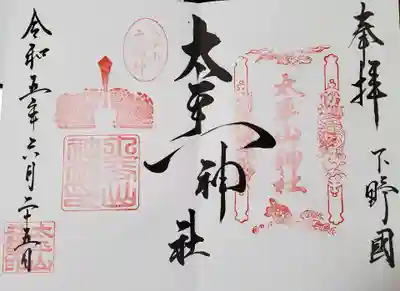 奉拝 下野國
太平山神社
太平山神社
令和五年六月二十五日
太平山